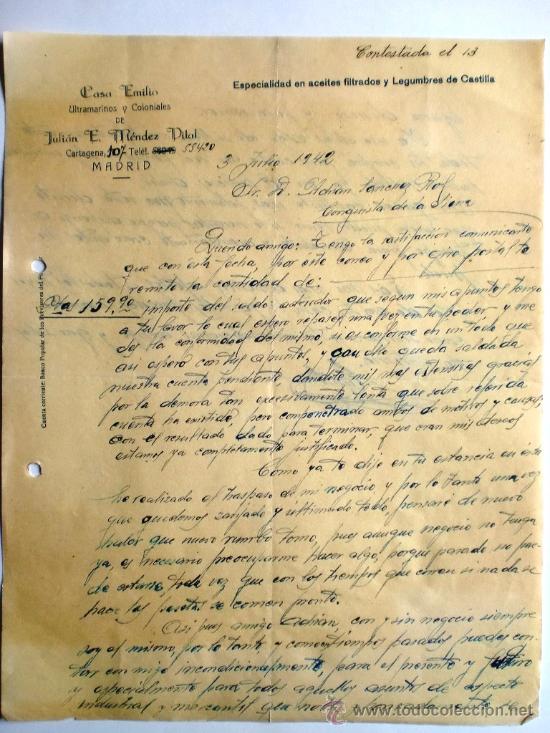 Contestada el 13
Especialidad en aceites filtrados y Legumbres de Castilla
Casa Emilio
Ultramarinos y Coloniales
DE
Julián E. Méndez Vital
Cartagena, 107 Teléf. 55490
MADRID
3 Julio 1942
Sr. D. Adrián Sanchez
Conquista de la Sierra
Querido amigo: Tengo la satisfacción comunicarte
que con esta fecha, por este correo y por giro postal te
remito la cantidad de:
Ptas 159,90 importe del saldo acreedor que segun mis apuntes tengo
a tu favor lo cual espero repases una vez en tu poder y me
des la conformidad del mismo, si es conforme en un todo que
asi espero con tus apuntes, y con ello queda saldada
nuestra cuenta pendiente dandote mil mas extensivas gracias
por la demora tan excesivamente lenta que sobre referida
cuenta ha existido, pero compenetrado ambos de motivos y causas,
con el resultado dado para terminar, que eran mis deseos
estamos ya completamente justificado.
Como ya te dije en tu estancia en esta
he realizado el traspaso de mi negocio y por lo tanto una vez
que quedemos zanjado y ultimado todo, pensaré de nuevo
que nuevo rumbo tomo, pues aunque negocio no tenga
ya, es necesario preocuparme hacer algo, porque parado no pue-
de estarse, toda vez que con los tiempos que corren si nada se
hace las pesetas se comen pronto.
Asi pues amigo Adrián, con y sin negocio siempre
soy el mismo, por lo tanto y como tiempos pasados puedes con-
tar con migo incondicionalmente, para el presente y futuro
y especialmente para todos aquellos asuntos de aspecto
industrial y mercantil que
Cuenta corriente: Banco Popular de los Previsores del P.
todocoleccion
www.todocoleccion.net